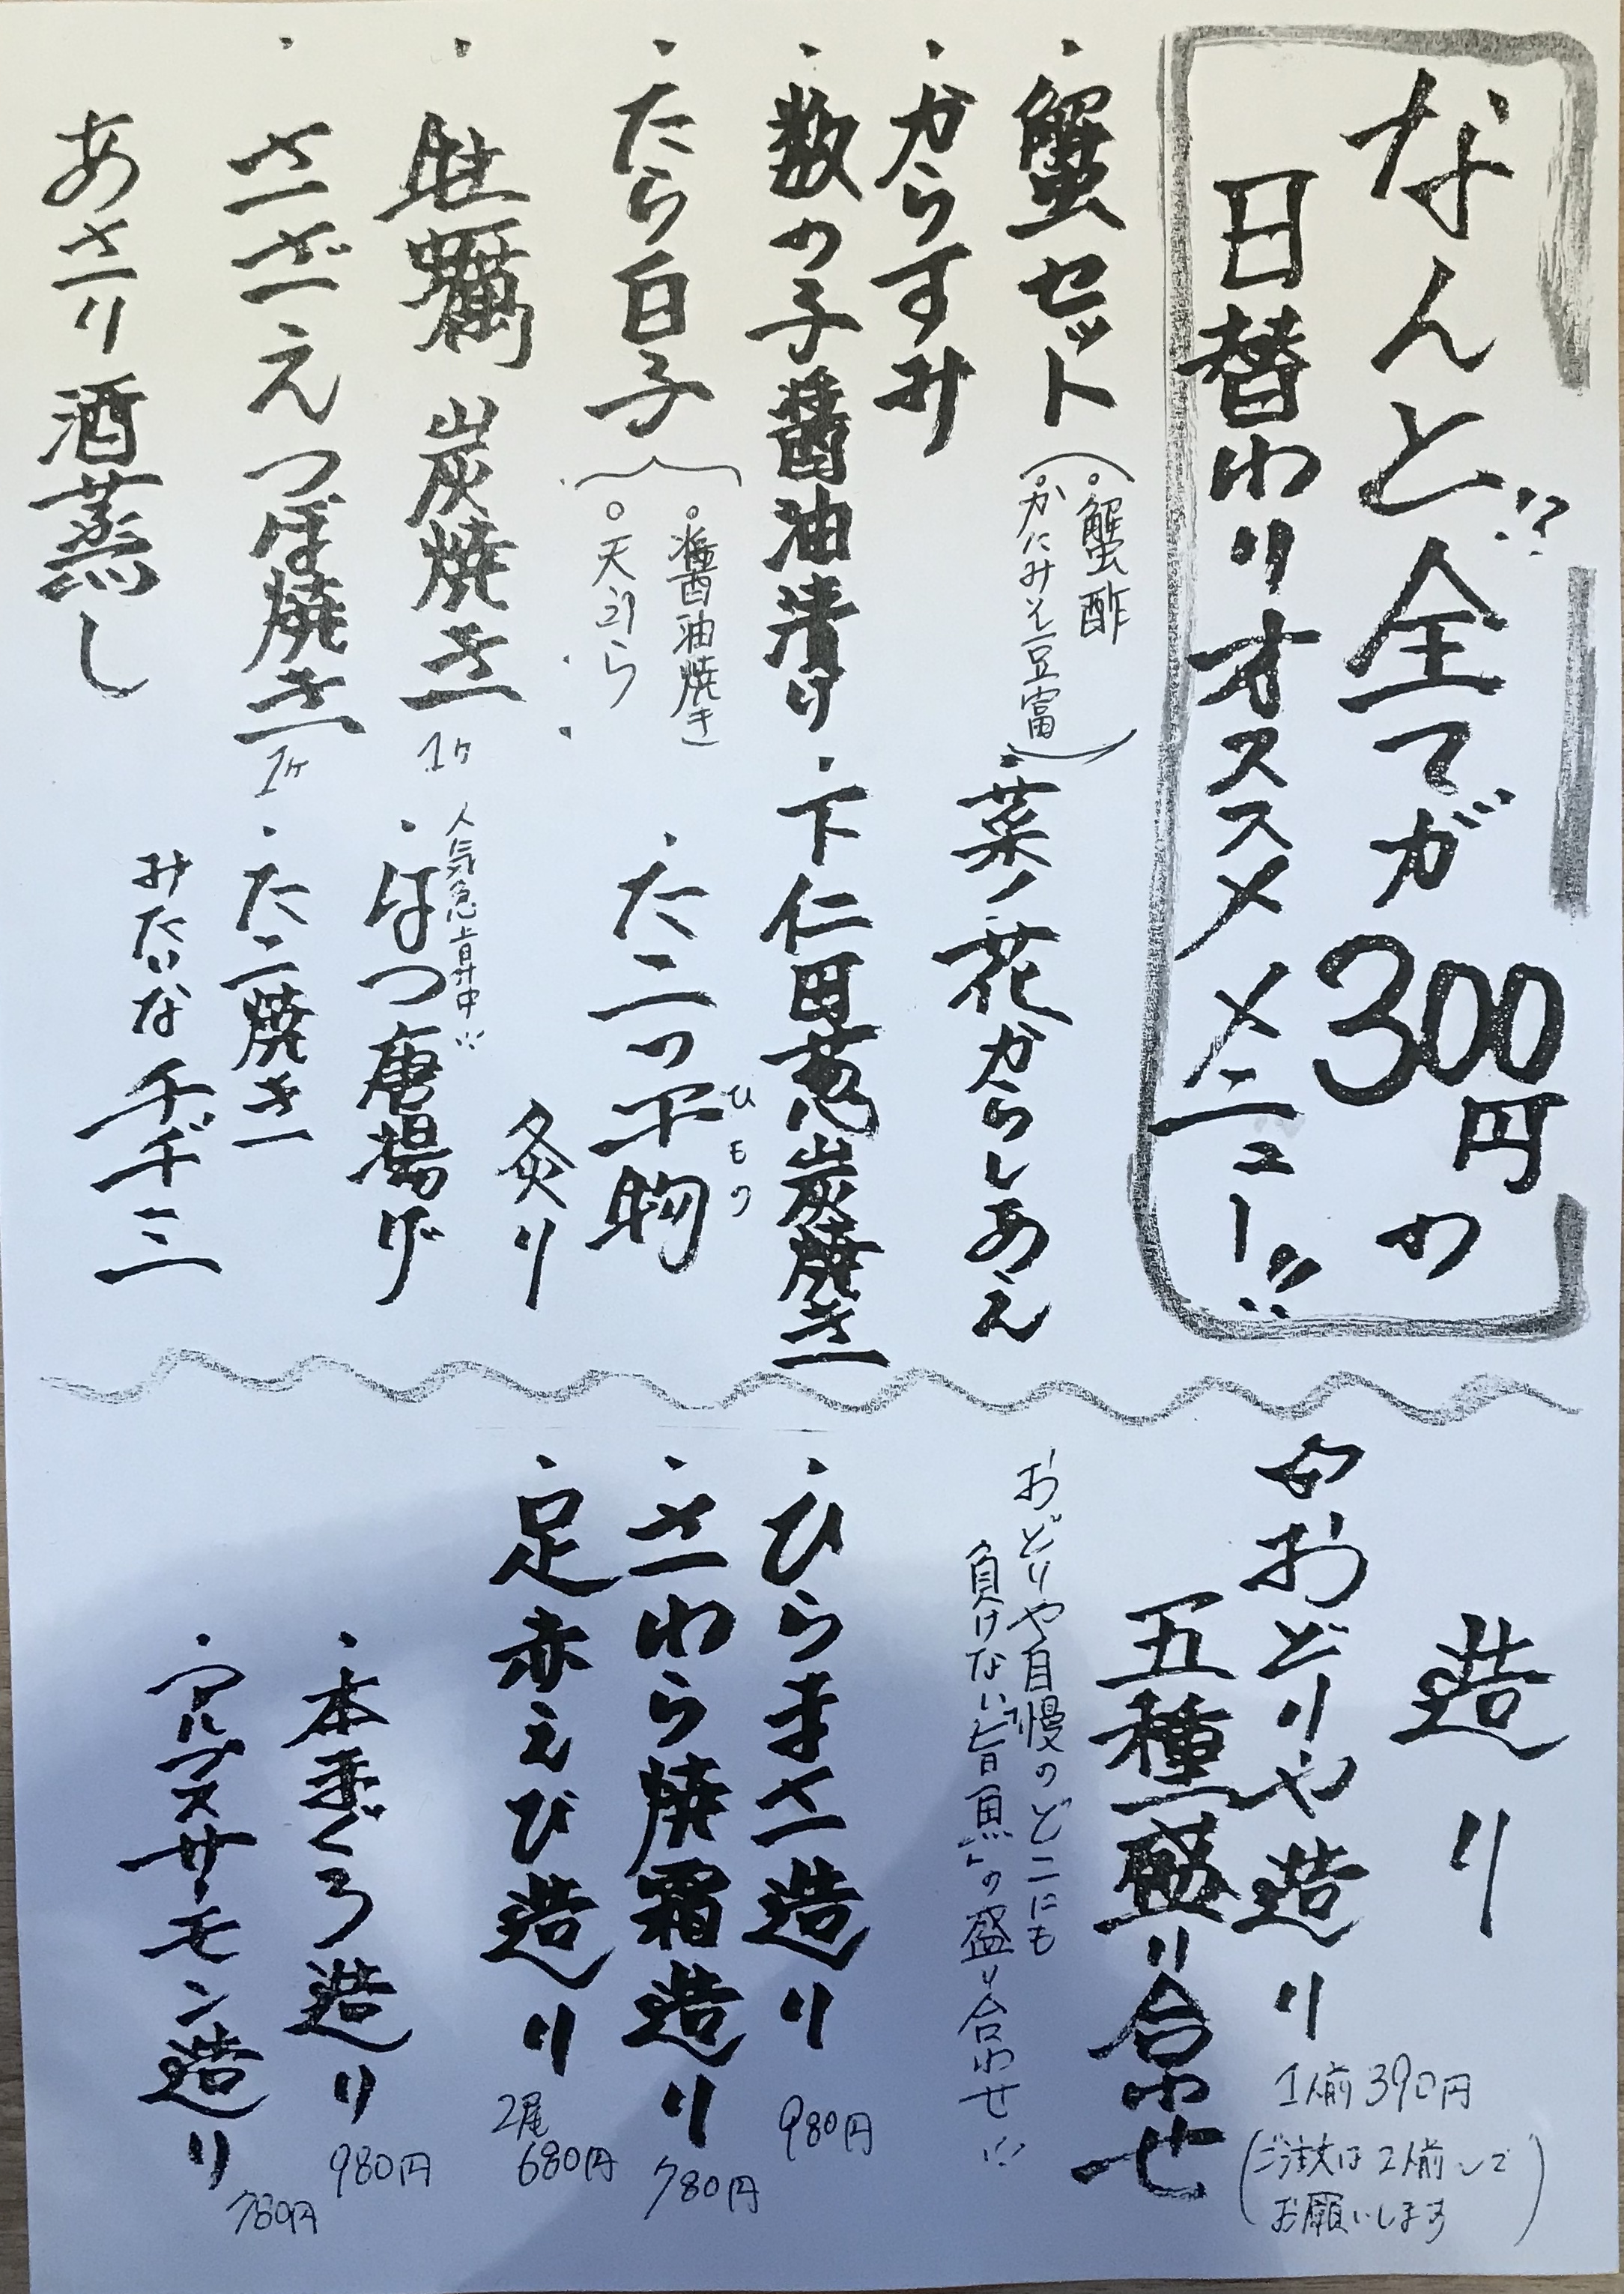 なんと!!全てが300円の
日替わりオススメメニュー!!
・蟹セット
(。蟹酢
。かにみそ豆富)
・菜ノ花からしあえ
・からすみ
・数の子醤油漬け
・下仁田葱炭焼き
・たら白子
。醤油焼き
。天ぷら
・たこの干物
ひもの
炙り
・牡蠣 炭焼き 1ヶ
人気急上昇中!!
・はつ唐揚げ
・さざえつぼ焼き 1ヶ
・たこ焼き
みたいなチヂミ
あさり酒蒸し
造り
おどりや造り
五種盛り合わせ
1人前390円
(ご注文は2人前〜で
お願いします)
おどりや自慢のどこにも
負けない「旨魚」の盛り合わせ!!
・ひらまさ造り 980円
・さわら焼霜造り 780円
・足赤えび造り 2尾 680円
・本まぐろ造り 980円
・アルプスサーモン造り 780円